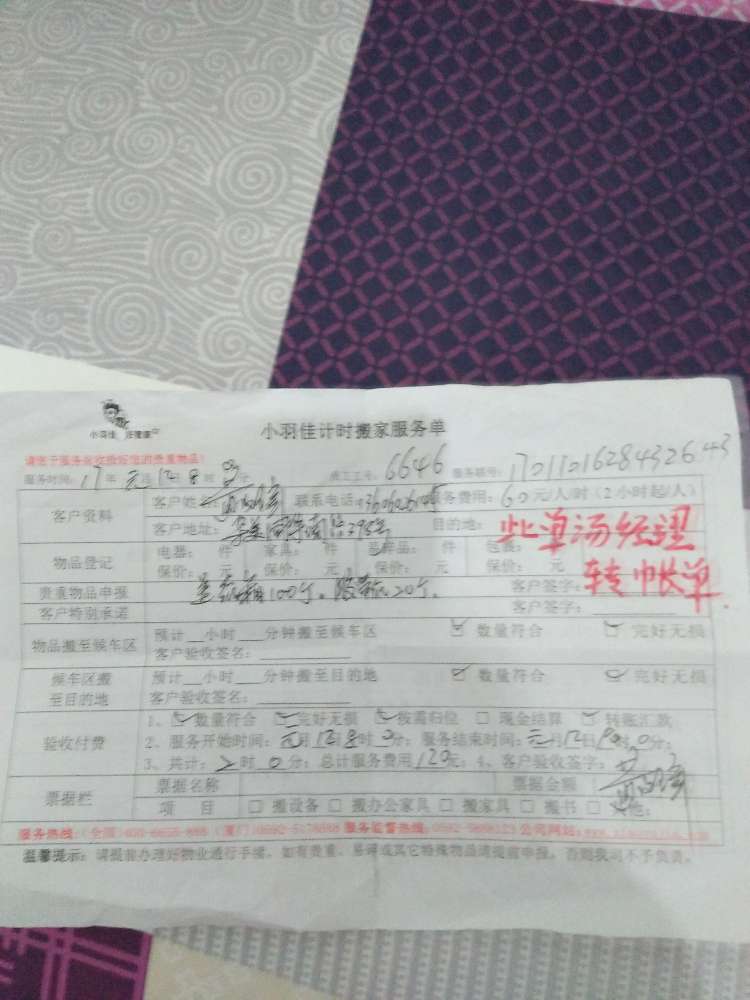 小羽佳
小羽佳计时搬家服务单
请您于服务前收捡好您的贵重物品!
服务时间:17年元月12日8时 分 员工工号:6646 服务编号:17011016284326.43
客户资料 客户姓名 联系电话 服务费用:60元/人/时(2小时起/人)
客户地址: 目的地:
此单汤经理
转帐单.
物品登记 电器: 件 家具: 件 总样品: 件 包装:
保价: 元 保价: 元 保价: 元 保价: 元
贵重物品申报 100个。胶带20个. 客户签字:
客户特别承诺 客户签字:
物品搬至候车区 预计__小时__分钟搬至候车区 数量符合 完好无损
客户验收签名:
候车区搬至目的地 预计__小时__分钟搬至目的地 数量符合 完好无损
客户验收签名:
验收付费 1、数量符合 完好无损 按需归位 现金结算 转账汇款
2、服务开始时间:元月12日8时0分;服务结束时间:元月12日10时0分;
3、共计:2时0分;总计服务费用120元;4、客户验收签字:
票据栏 票据名称 票据金额
项 目 搬设备 搬办公家具 搬家具 搬书 其他:
服务热线: 服务监督热线: 公司网站:
温馨提示:请提前办理好物业通行手续,如有贵重、易碎或其它特殊物品请提前申报,否则我司不予负责。